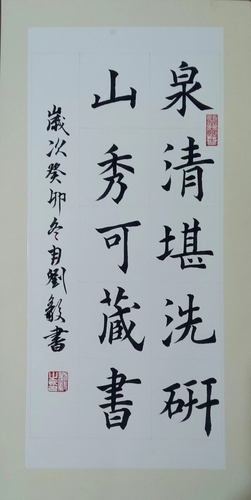 泉清堪洗研
山秀可藏書
歲次癸卯冬月劉毅書